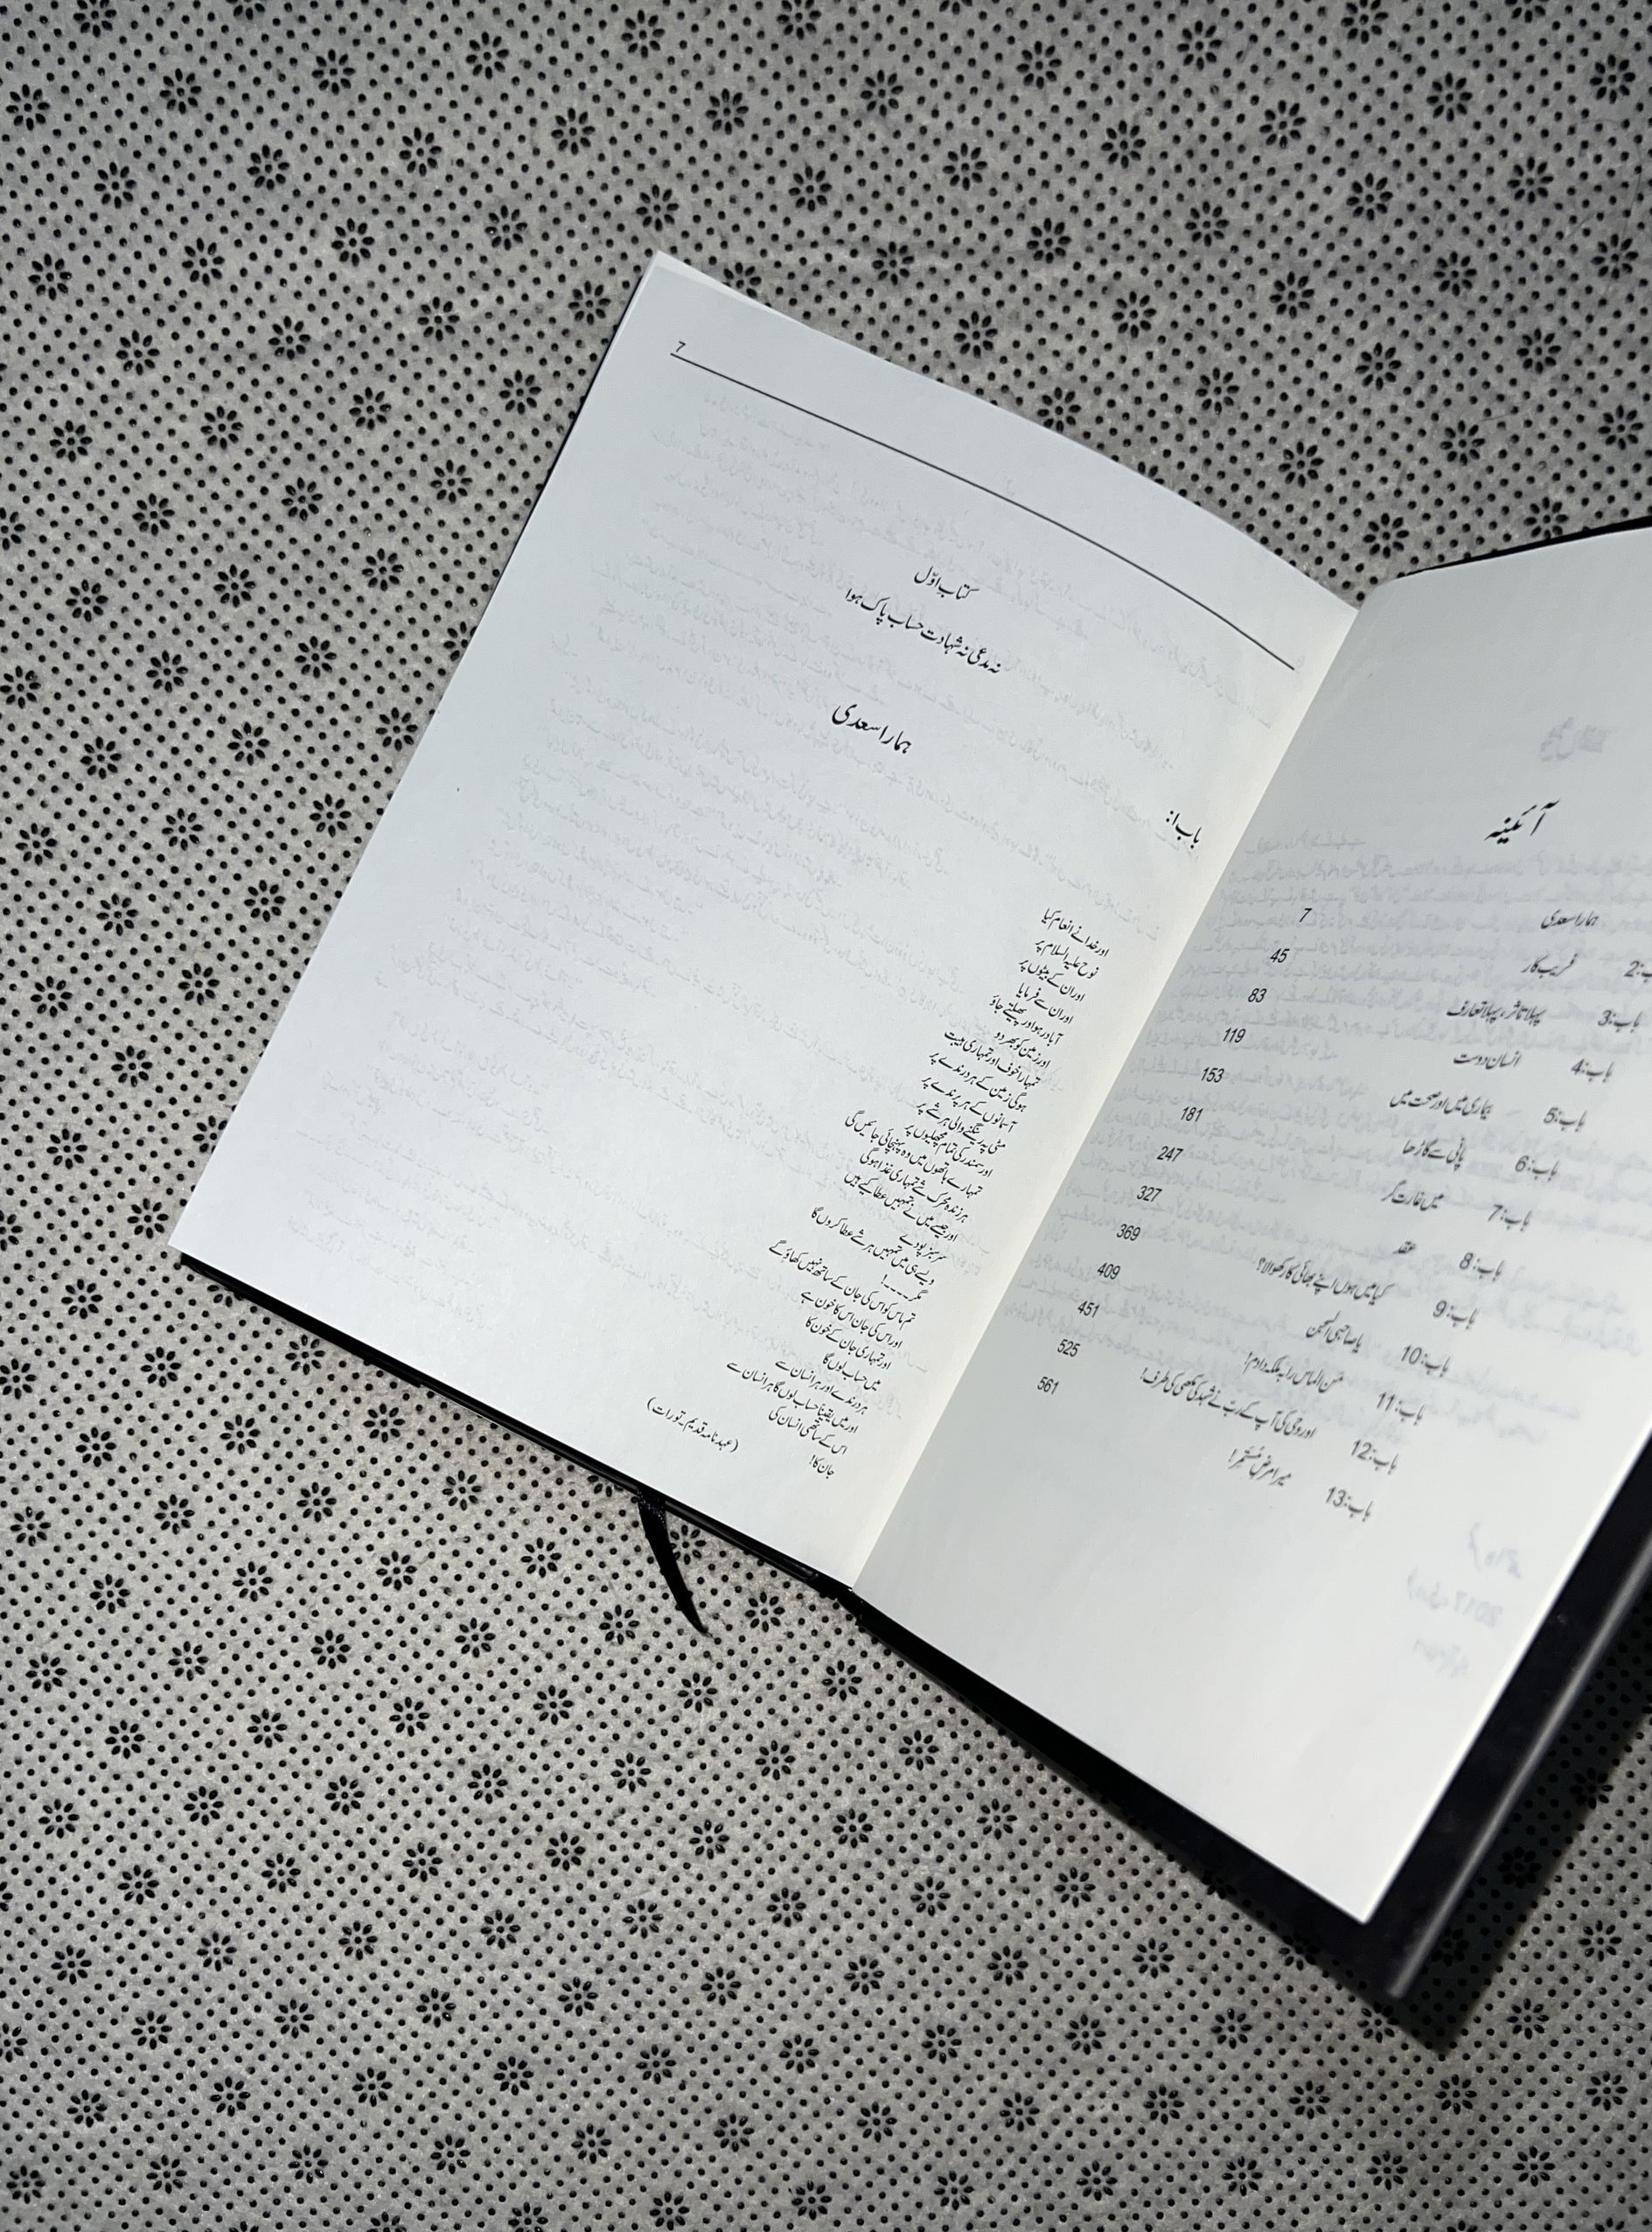 آئینہ
ہمارا سعدی 7
باب:2 فریب کار 45
باب:3 پہلا تاثر، پہلا تعارف 83
باب:4 انسان دوست 119
باب:5 بیماری میں اور صحت میں 153
باب:6 پانی سے گاڑھا 181
باب:7 میں غارت گر 247
باب:8 عقد 327
باب:9 کیا میں ہوں اپنے بھائی کا رکھوالا؟ 369
باب:10 یا صاحبی السجن 409
باب:11 حُسنِ الماس را بہ ملکہ دادم! 451
باب:12 اور وحی کی آپ کے رب نے شہد کی مکھی کی طرف! 525
باب:13 میرا مرضِ مُستمِر! 561
7
کتاب اوّل
نہ مدعی نہ شہادت حساب پاک ہوا
ہمارا سعدی
باب ا:
اور خدا نے انعام کیا
نوح علیہ السلام پر
اور ان کے بیٹوں پر
اور ان سے فرمایا
آباد رہو اور پھیلتے جاؤ
اور زمین کو بھر دو
تمہارا خوف اور تمہاری ہیبت
ہوگی زمین کے ہر درندے پر
آسمانوں کے ہر پرندے پر
مٹی پہ رینگنے والی ہر شے پر
اور سمندر کی تمام مچھلیوں پر
تمہارے ہاتھوں میں وہ پہنچائی جائیں گی
ہر زندہ متحرک شے تمہاری غذا ہوگی
اور جیسے میں نے تمہیں عطا کیے ہیں
سرسبز پودے
ویسے ہی میں تمہیں ہر شے عطا کروں گا
مگر۔۔۔۔!
تم ماس کو اس کی جان کے ساتھ نہیں کھاؤ گے
اور اس کی جان اس کا خون ہے
اور تمہاری جان کے خون کا
میں حساب لوں گا
ہر درندے اور ہر انسان سے
اور میں یقیناً حساب لوں گا ہر انسان سے
اس کے ساتھی انسان کی
جان کا!
(عہد نامہ قدیم۔ تورات)